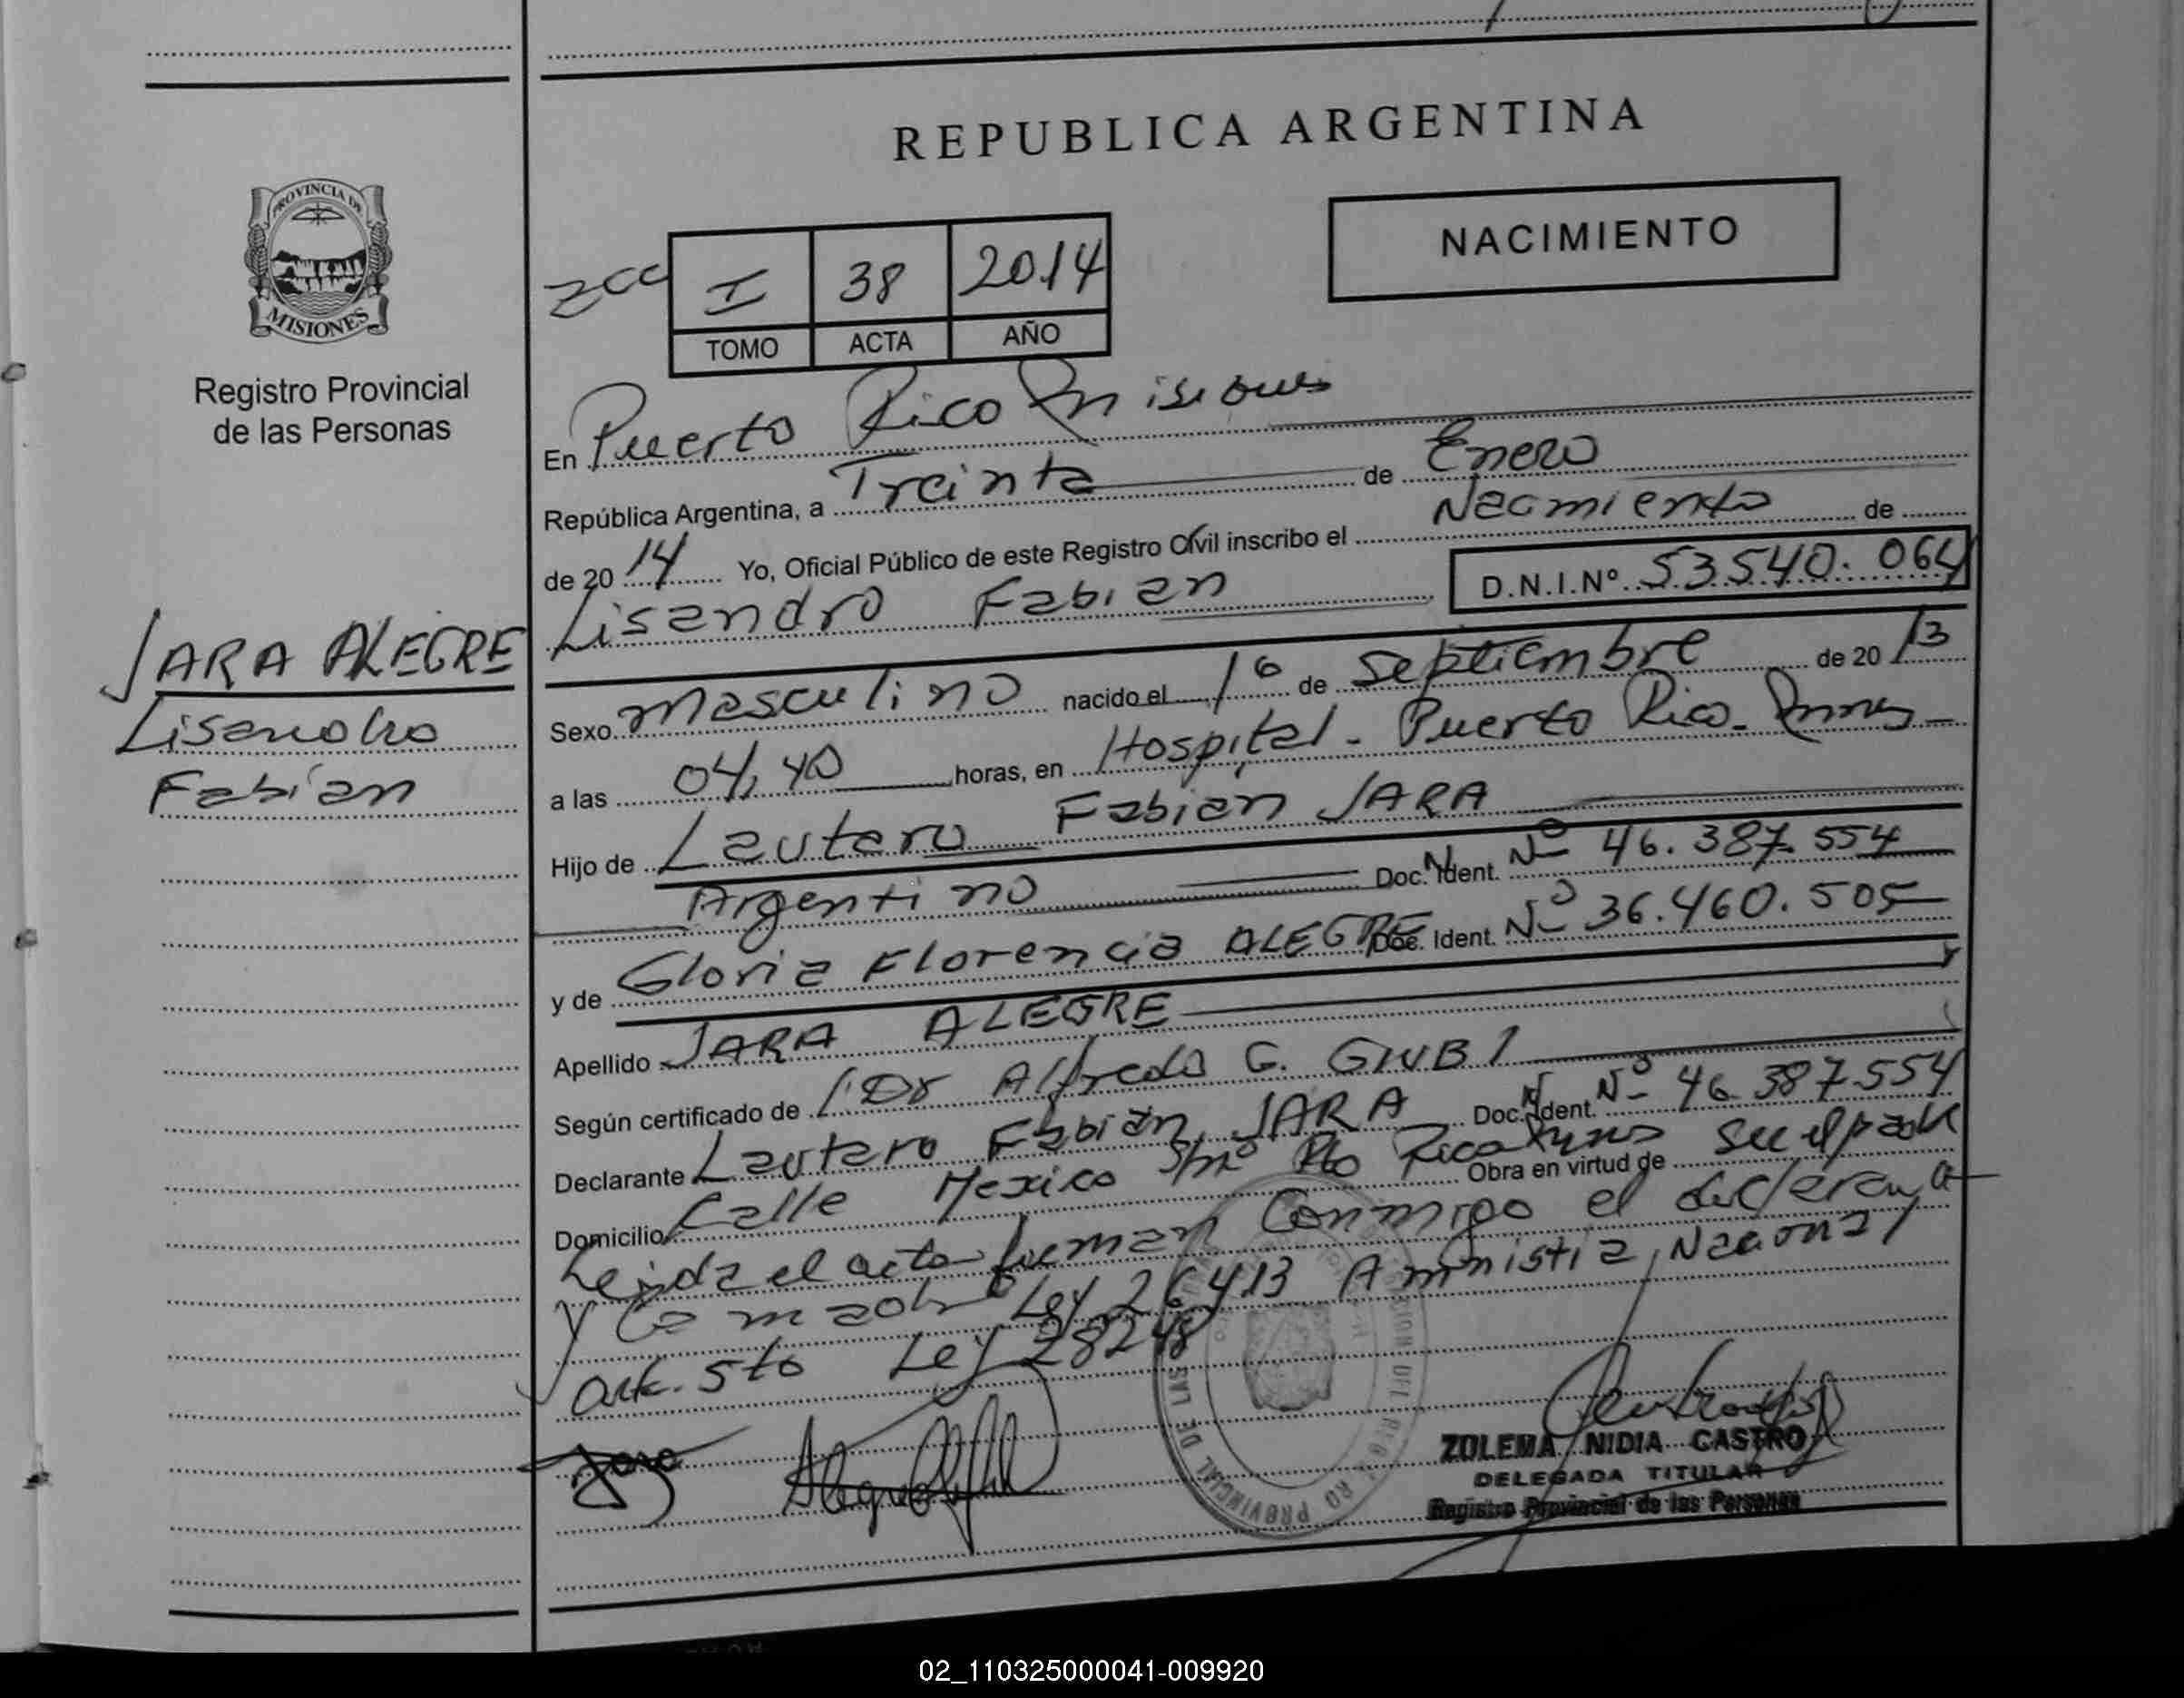 REPUBLICA ARGENTINA
NACIMIENTO
PROVINCIA DE
MISIONES
Registro Provincial
de las Personas
JARA ALEGRE
Lisandro
Fabián
I 38 2014
TOMO ACTA AÑO
En Puerto Rico Misiones
República Argentina, a Treinta de Enero
de 20 14 Yo, Oficial Público de este Registro Civil inscribo el Nacimiento de
Lisandro Fabian D.N.I.Nº 53.540.064
Sexo Masculino nacido el 1º de Septiembre de 20 13
a las 04,40 horas, en Hospital - Puerto Rico - Mnes -
Hijo de Lautaro Fabian JARA
Argentino Doc. N. Ident. Nº 46.387.554
y de Gloria Florencia ALEGRE Doc. Ident. Nº 36.460.505
Apellido JARA ALEGRE
Según certificado de Dr Alfredo G.
Declarante Lautaro Fabián JARA Doc. N. Ident. Nº 46.387.554
Domicilio Calle Mexico S/nº Pto Rico Mnes Obra en virtud de ser el padre
Leída el acta firman conmigo el declarante
y la madre Ley 26413 Amnistia Nacional
art. 5to Ley 28248
Jara
ZULEMA NIDIA CASTRO
DELEGADA TITULAR
Registro Provincial de las Personas
02_110325000041-009920